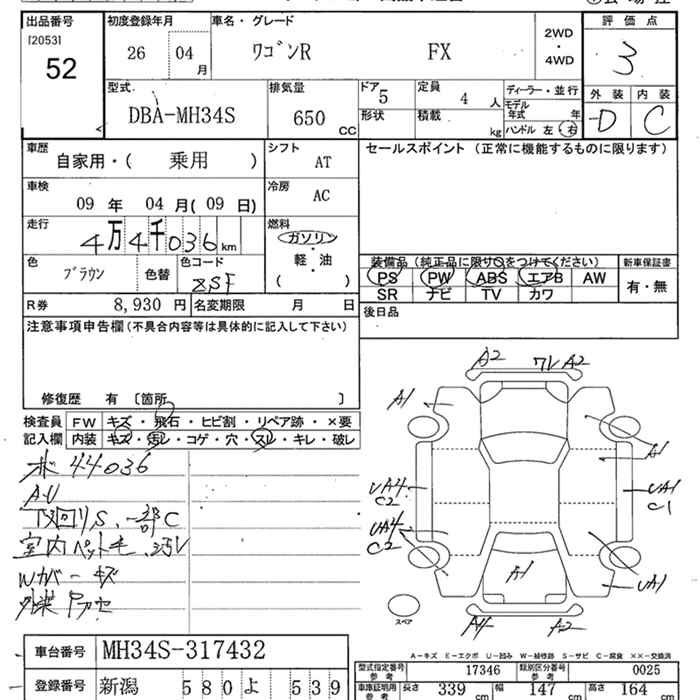 出品番号 初度登録年月 車名・グレード 評価点
[2053]
52
26 04 月
ワゴンR FX
2WD
・
4WD
3
型式 排気量 ドア 定員 ディーラー・並行 外装 内装
DBA-MH34S 650 CC
5 4 人
形状 積載 kg
モデル年式 年
ハンドル 左 右
D C
車歴 シフト セールスポイント (正常に機能するものに限ります)
自家用・( 乗用 ) AT
車検 冷房
09 年 04 月(09 日) AC
走行 燃料
4万4千036 km
ガソリン
・
軽・油
( )
色 ブラウン 色替 色コード ZSF
装備品(純正品に限り○をつけてください) 新車保証書
PS PW ABS エアB AW
SR ナビ TV カワ
有・無
R券 8,930 円 名変期限 月 日
後日品
注意事項申告欄(不具合内容等は具体的に記入して下さい)
修復歴 有 〔箇所 〕
検査員 FW キズ・飛石・ヒビ割・リペア跡・×要
記入欄 内装 キズ・汚レ・コゲ・穴・スレ・キレ・破レ
44036
S、一部C
室内ペット毛
Wカバーキズ
A2 ワレ A2
A1
A1
UA4
C2
UA1
C1
UA4
C2
A1
UA1
A4 A2
スペア
A-キズ E-エクボ U-凹み W-補修跡 S-サビ C-腐食 ××-交換済
車台番号 MH34S-317432
登録番号 新潟 580 よ 539
型式指定番号 参考 17346 類別区分番号 参考 0025
車庫証明用 参考 長さ 339 cm 幅 147 cm 高さ 164 cm